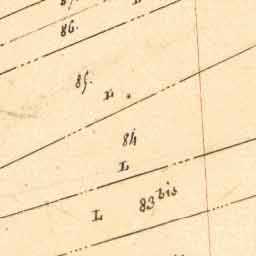 86.
85.
L.
84
L
83 bis
L